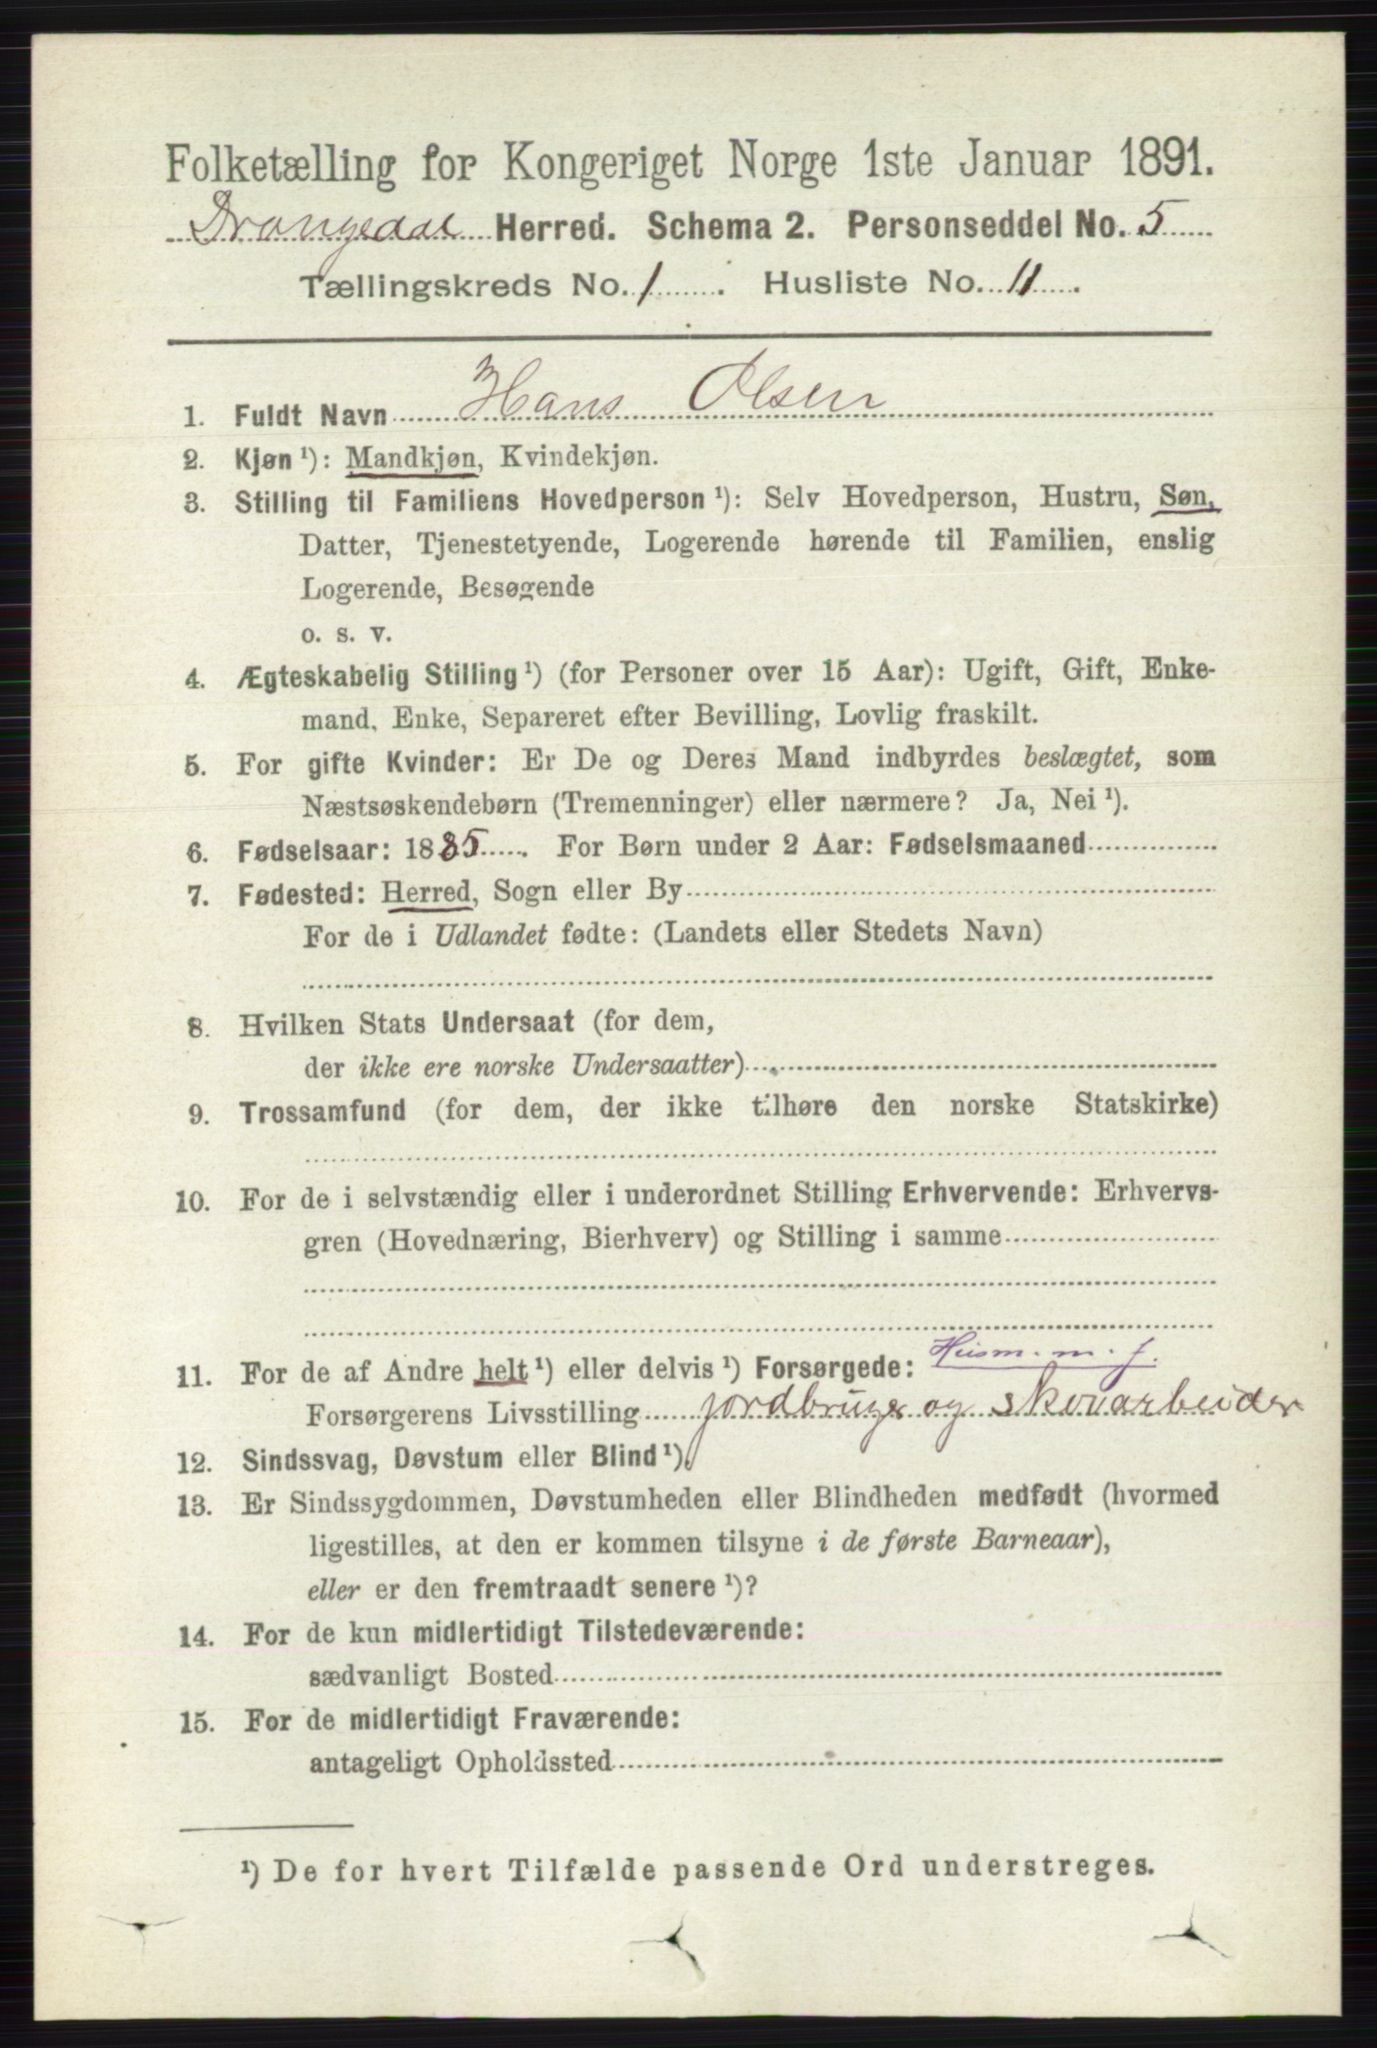 Folketælling for Kongeriget Norge 1ste Januar 1891.
Drangedal Herred. Schema 2. Personseddel No. 5
Tællingskreds No. 1. Husliste No. 11.
1. Fuldt Navn Hans Olsen
2. Kjøn ¹): Mandkjøn, Kvindekjøn.
3. Stilling til Familiens Hovedperson ¹): Selv Hovedperson, Hustru, Søn,
Datter, Tjenestetyende, Logerende hørende til Familien, enslig
Logerende, Besøgende
o. s. v.
4. Ægteskabelig Stilling ¹) (for Personer over 15 Aar): Ugift, Gift, Enke-
mand, Enke, Separeret efter Bevilling, Lovlig fraskilt.
5. For gifte Kvinder: Er De og Deres Mand indbyrdes beslægtet, som
Næstsøskendebørn (Tremenninger) eller nærmere? Ja, Nei ¹).
6. Fødselsaar: 1885. For Børn under 2 Aar: Fødselsmaaned
7. Fødested: Herred, Sogn eller By
For de i Udlandet fødte: (Landets eller Stedets Navn)
8. Hvilken Stats Undersaat (for dem,
der ikke ere norske Undersaatter)
9. Trossamfund (for dem, der ikke tilhøre den norske Statskirke)
10. For de i selvstændig eller i underordnet Stilling Erhvervende: Erhvervs-
gren (Hovednæring, Bierhverv) og Stilling i samme
11. For de af Andre helt ¹) eller delvis ¹) Forsørgede: Husm. m. j.
Forsørgerens Livsstilling jordbruger og skovarbeider
12. Sindssvag, Døvstum eller Blind ¹).
13. Er Sindssygdommen, Døvstumheden eller Blindheden medfødt (hvormed
ligestilles, at den er kommen tilsyne i de første Barneaar),
eller er den fremtraadt senere ¹)?
14. For de kun midlertidigt Tilstedeværende:
sædvanligt Bosted
15. For de midlertidigt Fraværende:
antageligt Opholdssted
¹) De for hvert Tilfælde passende Ord understreges.